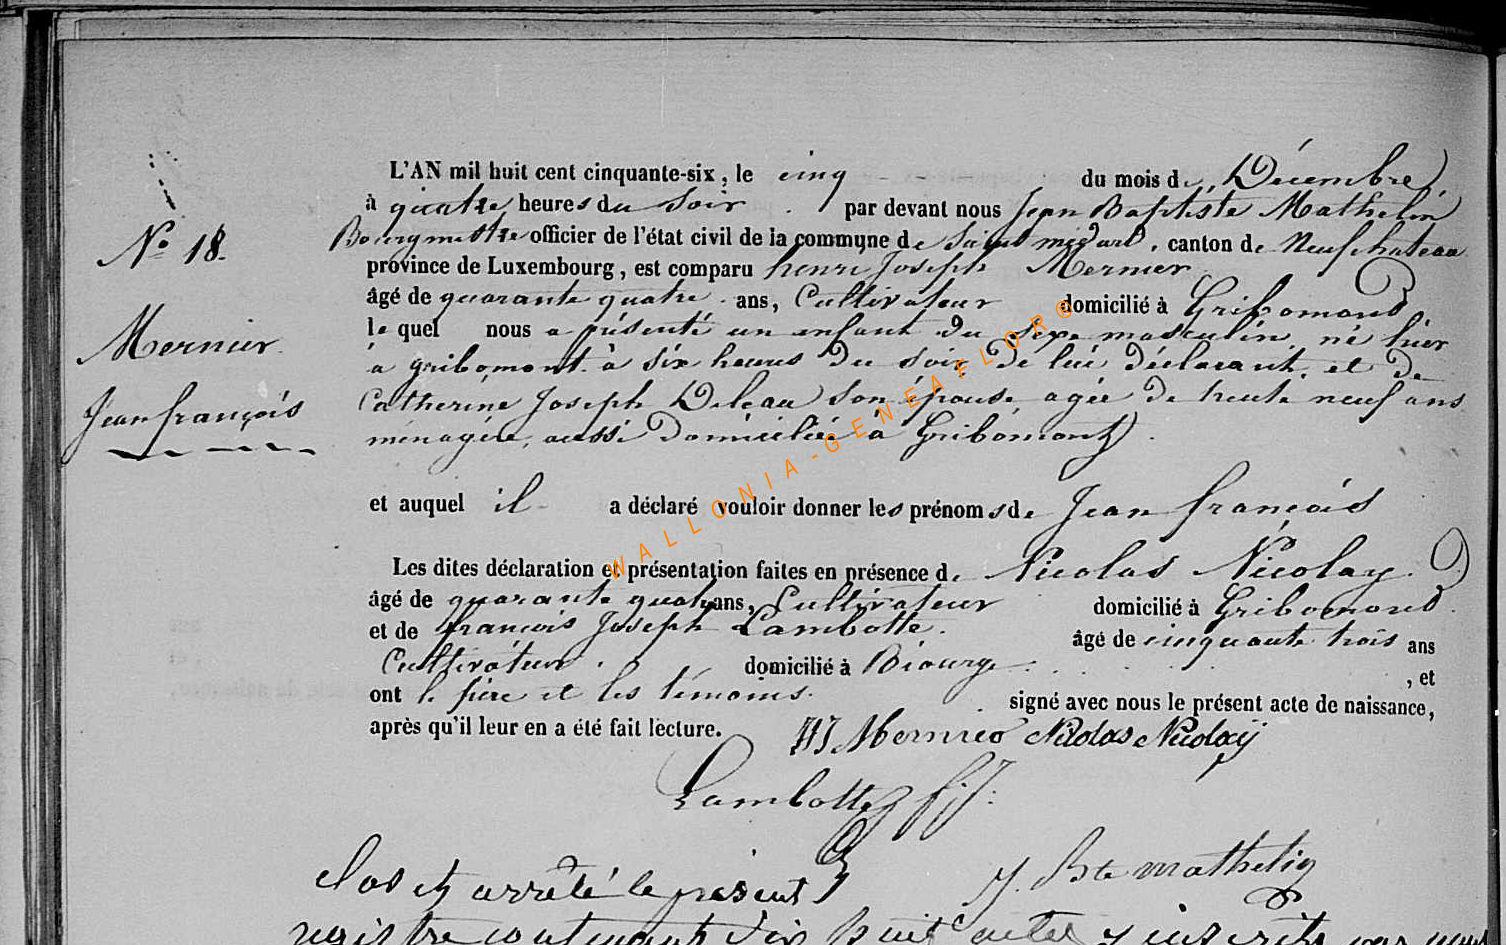 L'AN mil huit cent cinquante-six, le cinq du mois de Décembre,
à quatre heures du soir par devant nous Jean Baptiste Mathelin
Bourgmestre officier de l'état civil de la commune de Saint médard, canton de Neufchateau
province de Luxembourg, est comparu henri Joseph Mernier
âgé de quarante quatre ans, Cultivateur domicilié à Gribomond,
le quel nous a présenté un enfant du sexe masculin, né hier
à gribomont à six heures du soir de lui déclarant, et de
Catherine Joseph Deleau son épouse agée de trente neuf ans
ménagère, aussi domiciliée à Gribomont
et auquel il a déclaré vouloir donner les prénoms de Jean françois
Les dites déclaration et présentation faites en présence de Nicolas Nicolay
âgé de quarante quatre ans, Cultivateur domicilié à Gribomond
et de françois Joseph Lambotte. âgé de cinquante trois ans
Cultivateur. domicilié à Biourge, et
ont le père et les témoins signé avec nous le présent acte de naissance,
après qu'il leur en a été fait lecture.
HJ Mernier Nicolas Nicolaÿ
Lambotte fj:
J. Bte mathelin
Clos et arrêté le présent
registre contenant dix huit actes y inscrits
No 18.
Mernier
Jean françois
WALLONIA-GENEAFLORE